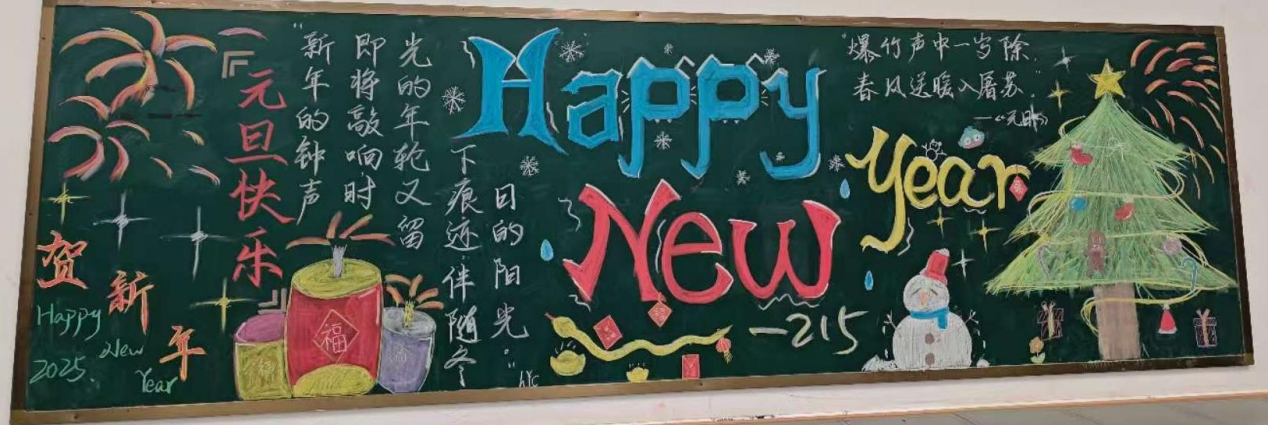 元旦快乐
贺新年
Happy
New
Year
2025.
"新年的钟声
即将敲响时
光的年轮又留
下痕迹.伴随冬
日的阳光."
Happy
New
Year
-215
"爆竹声中一岁除,
春风送暖入屠苏."
—《元日》
福